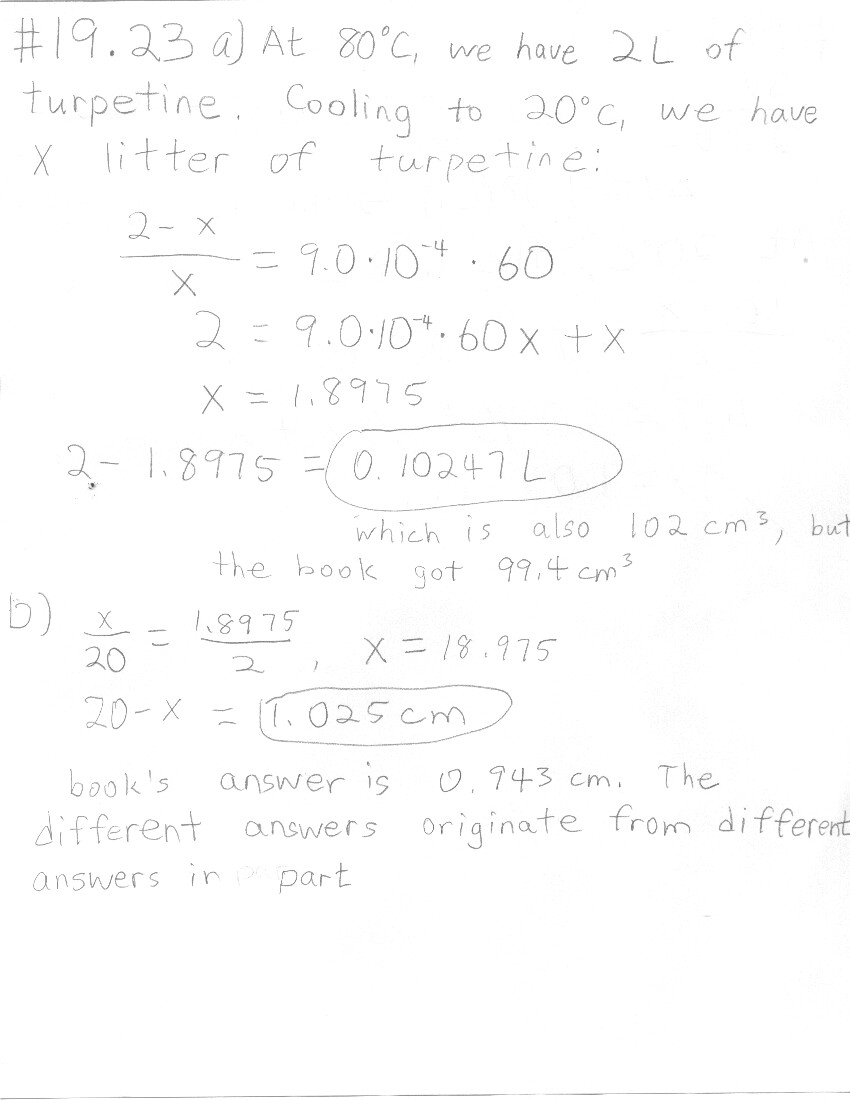 #19.23 a) At 80°C, we have 2L of
turpetine. Cooling to 20°C, we have
X litter of turpetine:
2 - x
/ X = 9.0·10⁻⁴ · 60
2 = 9.0·10⁻⁴·60x + x
x = 1.8975
2 - 1.8975 = 0.10247 L
which is also 102 cm³, but
the book got 99.4 cm³
b) x/20 = 1.8975/2, x = 18.975
20-x = 1.025cm
book's answer is 0.943 cm. The
different answers originate from different
answers in part